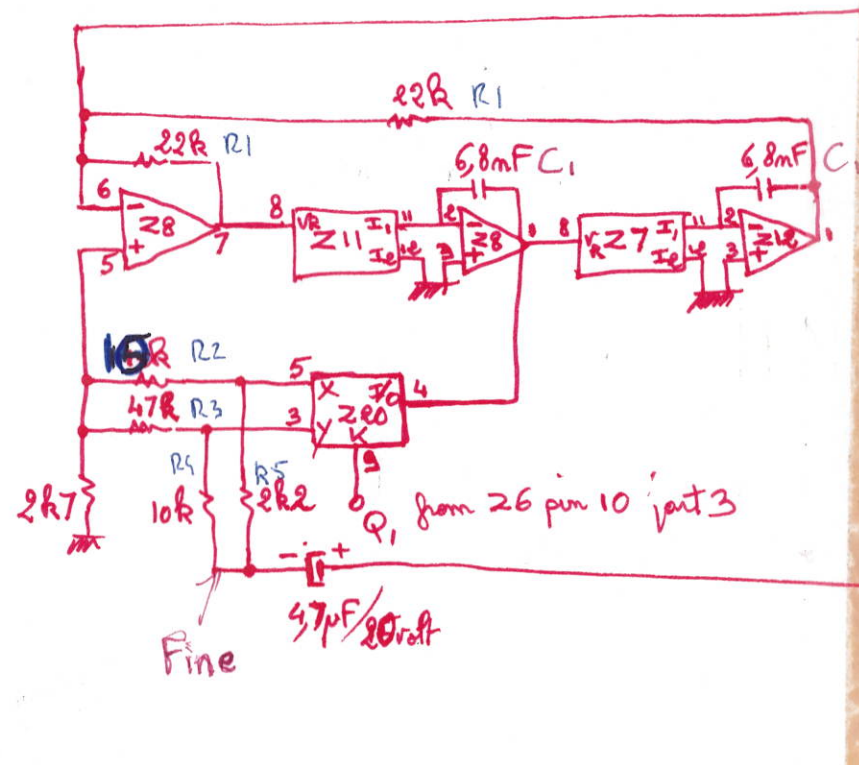 22k R1
22k R1
6,8nF C1
6,8nF C1
6 - Z8 7
5 +
8 VR Z11 I1 11
I2 12
2 - Z8 1
3 +
8 VR Z7 I1 11
I2 12
2 - Z12 1
3 +
15k R2
47k R3
5 X I/O 4
Z20
3 Y K
9
R4
R5
2k7
10k
2k2
Q1 from Z6 pin 10 part 3
- +
4,7µF/20volt
Fine